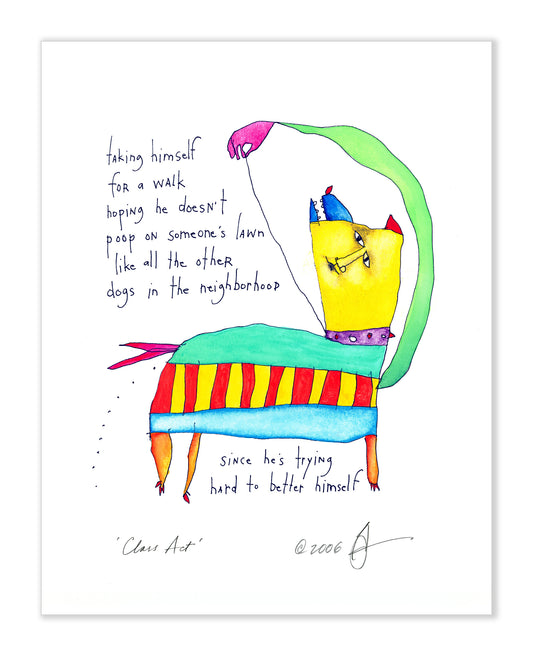 taking himself
for a walk
hoping he doesn't
poop on someone's lawn
like all the other
dogs in the neighborhood
since he's trying
hard to better himself
'Class Act'
©2006